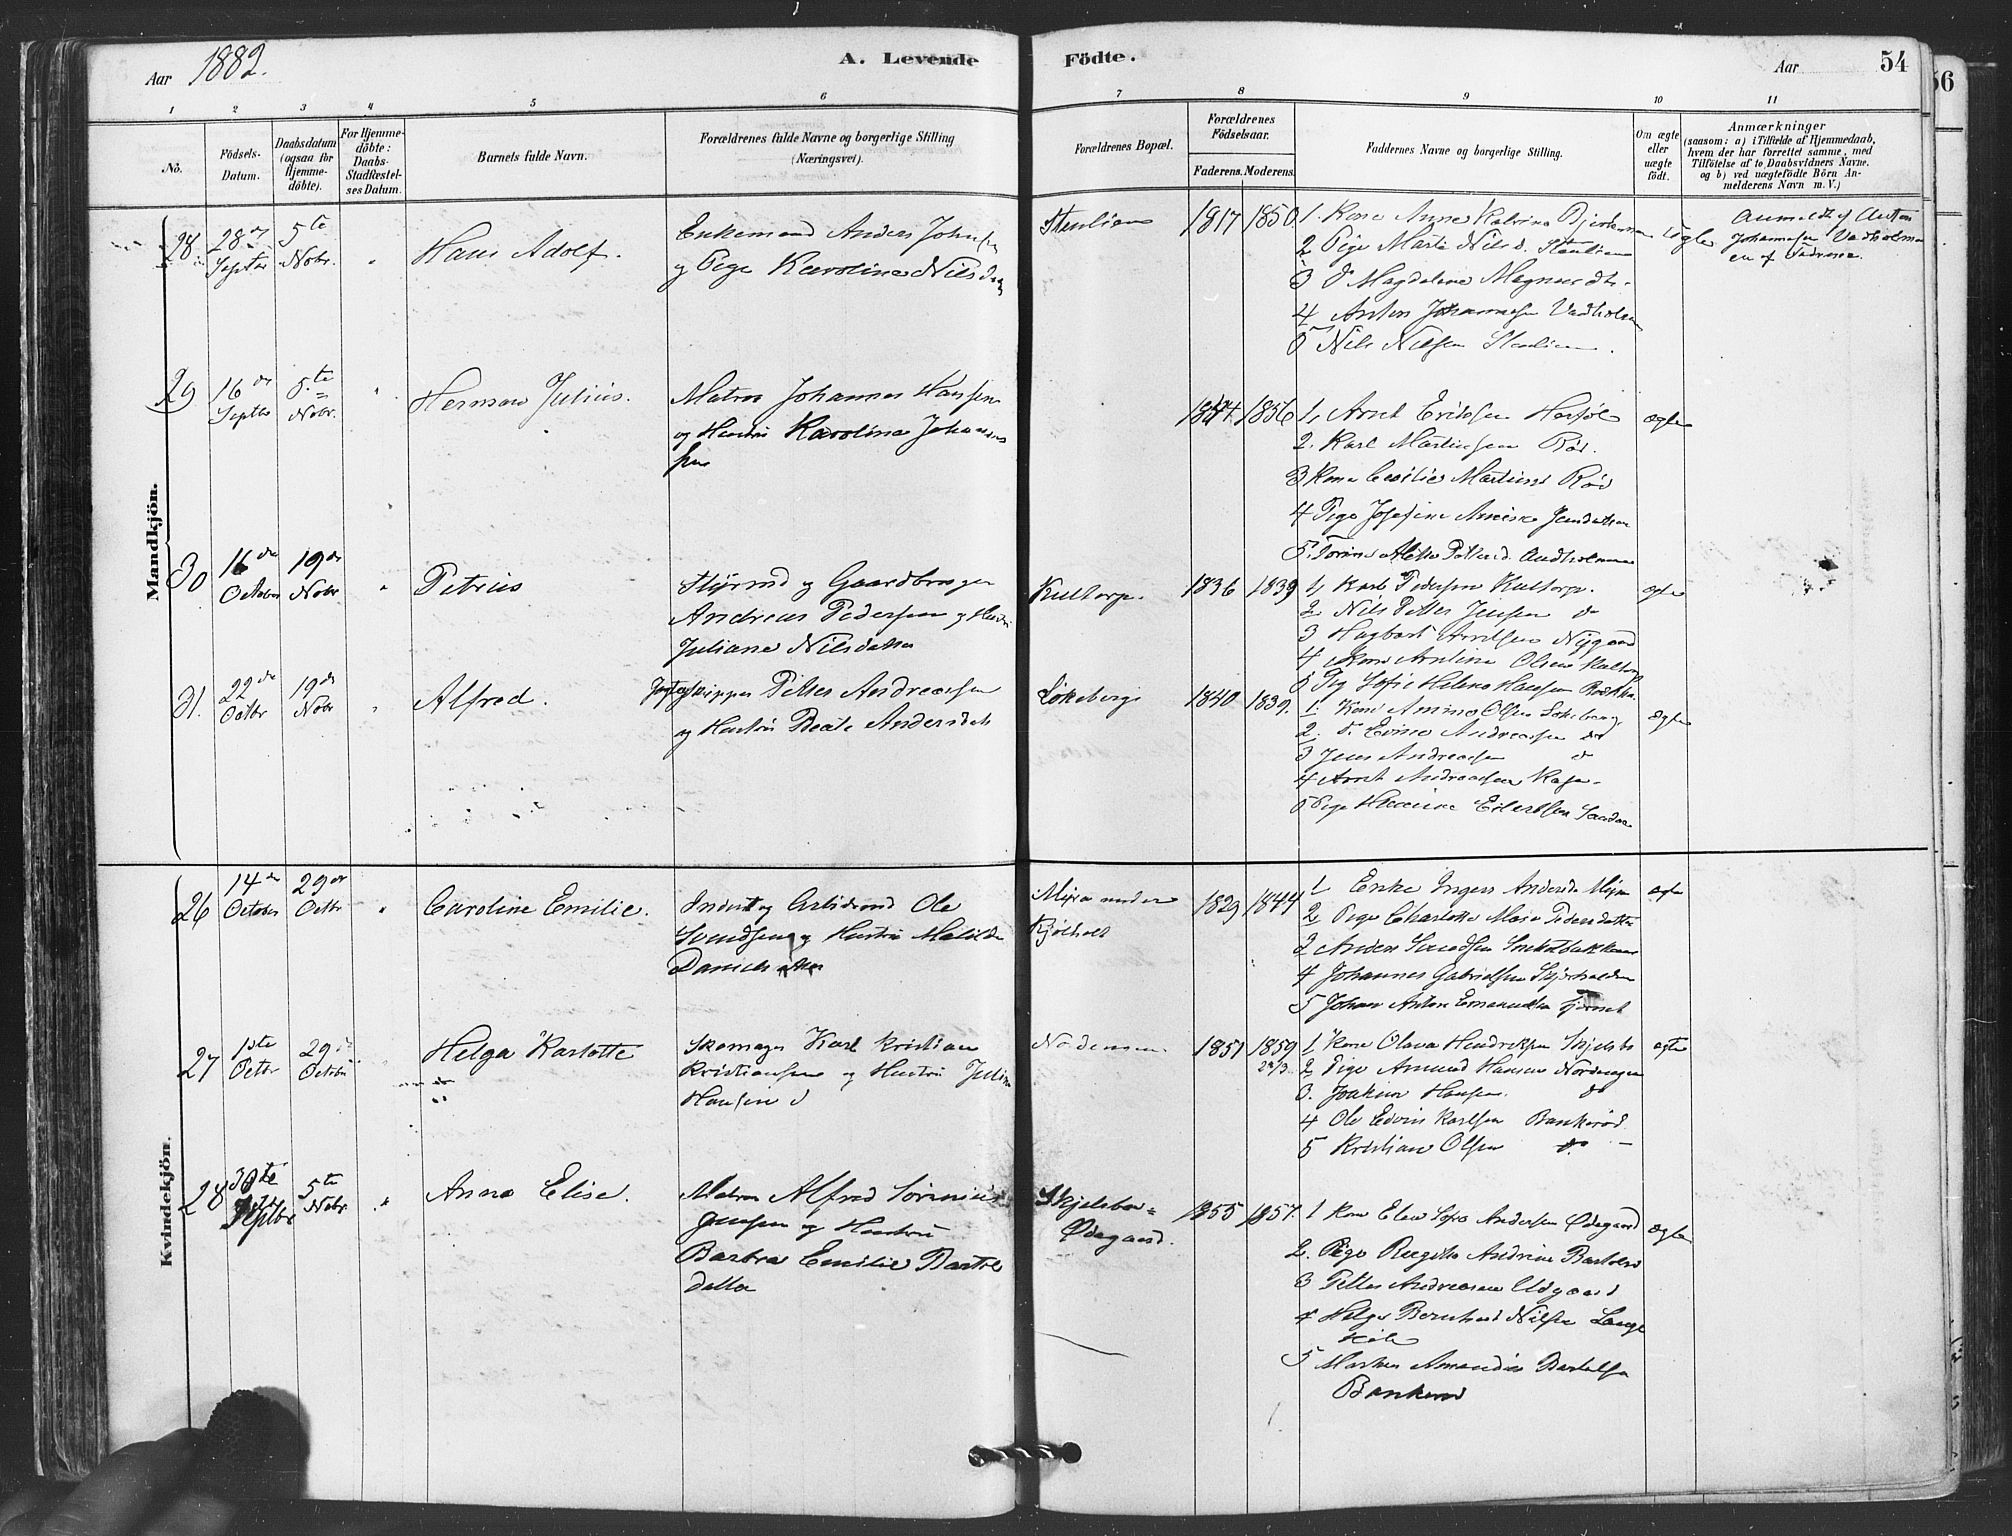 Aar 1882.
A. Levende
Födte.
Aar
54
56
1 2 3 4 5 6 7 8 9 10 11
No.
Födsels-
Datum.
Daabsdatum
(ogsaa for
Hjemme-
döbte).
For Hjemme-
döbte:
Daabs-
Stadfæstel-
ses Datum.
Barnets fulde Navn.
Forældrenes fulde Navne og borgerlige Stilling
(Næringsvei).
Forældrenes Bopæl.
Forældrenes
Födselsaar.
Faderens. Moderens.
Faddernes Navne og borgerlige Stilling.
Om ægte
eller
uægte
födt.
Anmærkninger
(saasom: a) i Tilfælde af Hjemmedaab,
hvem der har forrettet samme, med
Tilföielse af to Daabsvidners Navne.
og b) ved uægtefödte Börn An-
melderens Navn m. V.)
Mandkjön.
28.
28
Septbr
5te
Nobr.
Hans Adolf.
Enkemand Anders Johnsen
og Pige Karoline Nilsd
Stenlien
1817
1850.
1. Kone Anne
2 Pige Marte Nilsd. Stenlien
3 d Magdalene Magnusdt.
4 Anton Johannesen Vadholmen
5 Nils Nilsen Stenlien.
uægte
Anmeldt af Anton
Johannesen Vadholmen
29
16de
Septbr
5te
Nobr.
Herman Julius.
Matros Johannes Hansen
og Hustru Karoline Johannes
1854.
1856
1, Arnt Eriksen
2. Karl Martinsen Röd.
3 Kone Cecilie Martins Röd
4 Pige Josefine
ægte
30
16de
October
19de
Nobr
Petrus
Styrmd og Gaardbruger
Andreas Pedersen og Hustru
Juliane Nilsdatter
Kultorp.
1836
1839
1, Karl Pedersen Kultorp.
2 Nils Petter Jensen do
3 Hagbart Arnesen Nygaard
4 Kone Antine Olsen Kultorp
5 Pig Sofie Helene Hansen
ægte
31.
22de
Octbr
19de
Nobr
Alfred.
Petter Andreassen
og Hustru Beate Andersdatt
Lökeberg
1840
1839.
1. Kone Amine Olsen Lökeberg
2. P. Evine Andreassen do
3 Jens Andreassen do
4 Arnt Andreassen
5 Pige Eilertsen
ægte
Kvindekjön.
26
14de
October
29de
Octbr
Caroline Emilie.
Inderst og Arbeidsmd Ole
Svendsen og Hustru Matilde
Danielsdatter
under
Kjölholt
1829
1844
1 Enke Inger Andersd
2 Pige Charlotte Marie Pedersdatter
3 Anders Svendsen
4 Johannes Gabrielsen
5 Johan Anton Emanuelsen
ægte
27
1ste
Octbr
29de
October
Helga Karlotte
Skomager Karl Kristian
Kristiansen og Hustru Juline
Hansen d
Nordengen
1851
1859
28/3.
1 Kone Olava Hendriksen Skjelsbo
2 Pige Amund Hansen Nordengen
3. Joakim Hansen. do
4 Ole Edvin Karlsen Bankeröd.
5 Kristian Olsen do
ægte
28
30te
Septbr
5te
Nobr.
Anna Elise.
Matros Alfred Sörenius
Jensen og Hustru
Barbra Emilie Bartel
datter
Skjelsbo=
Ödegaard.
1855
1857.
1 Kone Elen Sofie Andersen Ödegaard
2. Pige Andrine Bartelsd
3 Petter Andreassen Ödgaard
4 Helge Bernhard Nilsen Lange
5 Morten Amandus Bartelsen
Bankeröd
ægte